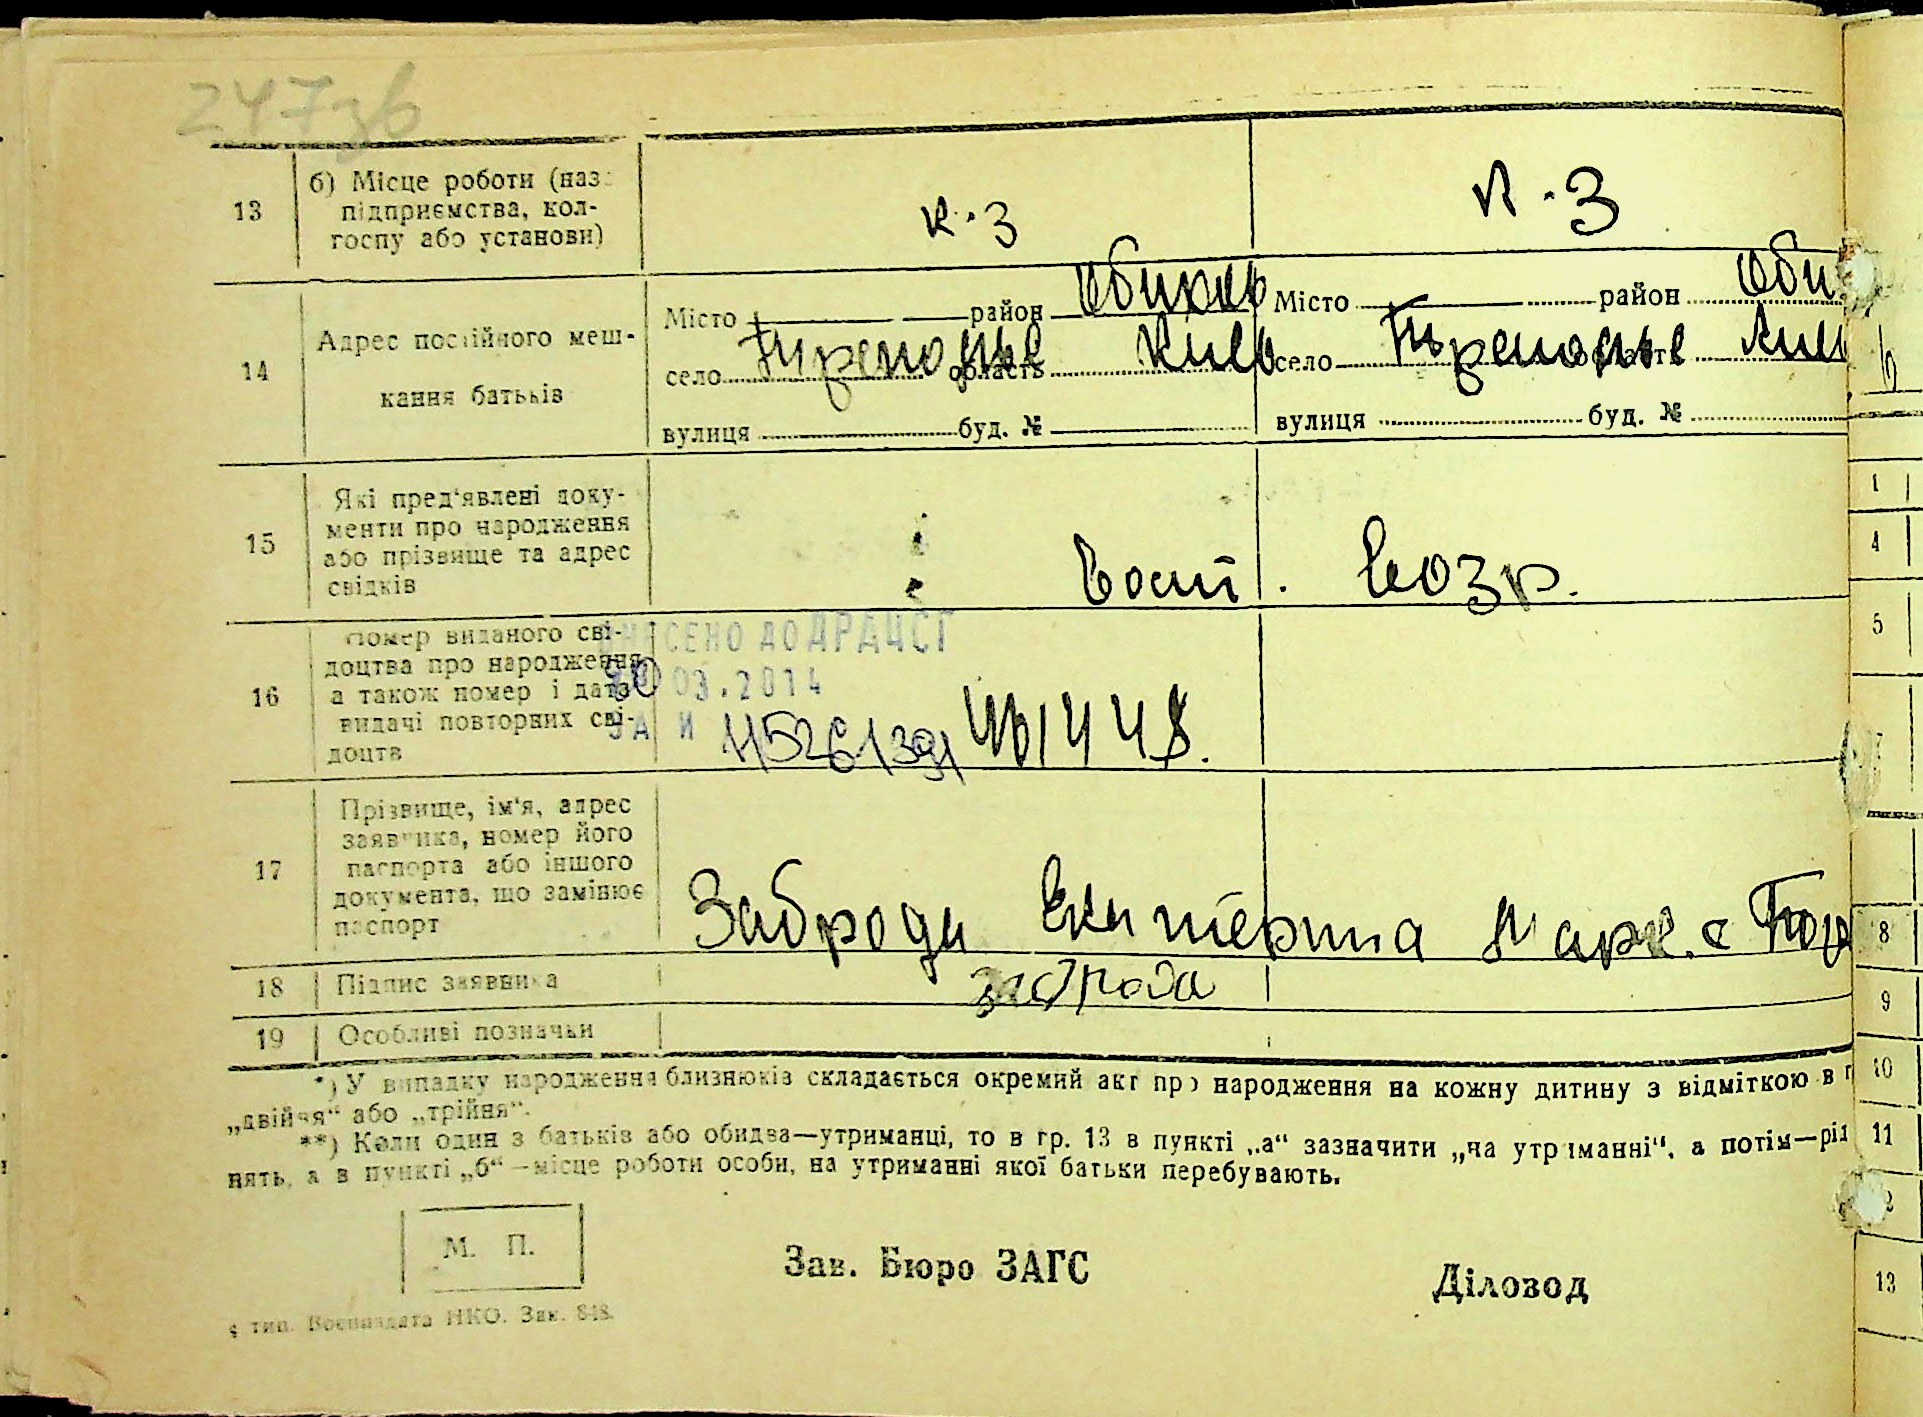 247зв
13
б) Місце роботи (наз
підприємства, кол-
госпу або установи)
к.з
к.з
14
Адрес постійного меш-
кання батьків
Місто район Обухов
село область Киев
вулиця буд. №
Місто район Обу
село область Кие
вулиця буд. №
15
Які пред'явлені доку-
менти про народження
або прізвище та адрес
свідків
Восст. возр.
16
Номер виданого сві-
доцтва про народження
а також номер і дата
видачі повторних сві-
доцтв
ВНЕСЕНО ДО ДРАЦСГ
03.2014
ЗА И
17
Прізвище, ім'я, адрес
заявника, номер його
паспорта або іншого
документа, що замінює
паспорт
Заброда Екатерина Марк. с
18
Підпис заявника
Заброда
19
Особливі позначки
*) У випадку народження близнюків складається окремий акт про народження на кожну дитину з відміткою в г
„двійня“ або „трійня“.
**) Коли один з батьків або обидва—утриманці, то в гр. 13 в пункті „а“ зазначити „на утриманні“, а потім—рід
нять, а в пункті „б“—місце роботи особи, на утриманні якої батьки перебувають.
М. П.
Зав. Бюро ЗАГС
Діловод
4 тип. Воениздата НКО. Зак. 848.
1
4
5
8
9
10
11
13